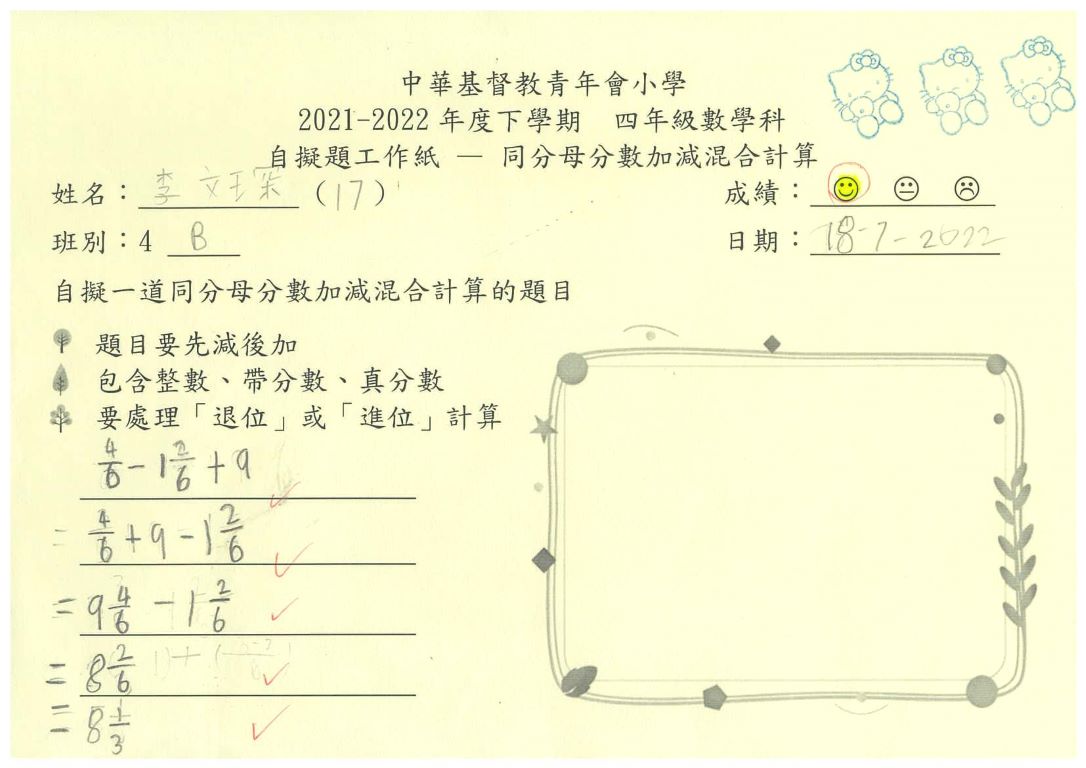 中華基督教青年會小學
2021-2022 年度下學期 四年級數學科
自擬題工作紙 — 同分母分數加減混合計算
姓名：李 (17) 成績：
班別：4 B 日期：18-7-2022
自擬一道同分母分數加減混合計算的題目
題目要先減後加
包含整數、帶分數、真分數
要處理「退位」或「進位」計算
4/6 - 1 2/6 + 9
= 4/6 + 9 - 1 2/6
= 9 4/6 - 1 2/6
= 8 2/6
= 8 1/3